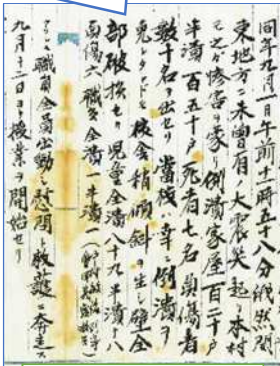 同年九月一日午前十一時五十八分俄然関
東地方ニ未曽有ノ大震災起リ本村
モ之ガ惨害ヲ蒙リ倒潰家屋百二十戸
半潰百五十戸死者七名負傷者
数十名ヲ出セリ當校ハ幸ニ倒潰ヲ
免レタレドモ校舎稍傾斜ヲ生ジ壁全
部破損セリ児童全潰八十九半潰十八
負傷六職員全潰一半潰一
職員全員出勤シ慰問救護ニ奔走ス
九月十二日ヨリ授業ヲ開始セリ